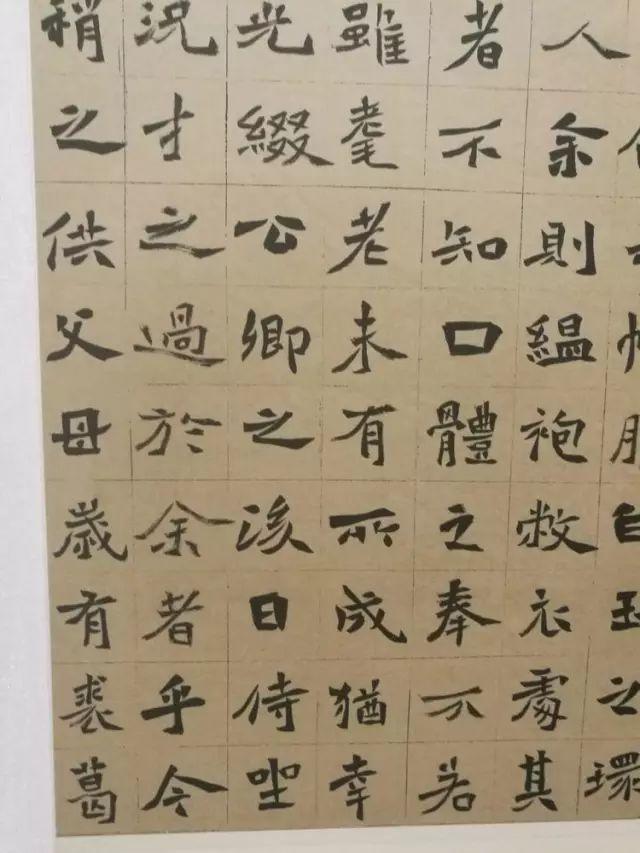 白玉之環
人余則緼袍敝衣處其
者不知口體之奉不若
雖耄老未有所成猶幸
光綴公卿之後日侍坐
況才之過於余者乎今
稍之供父母歲有裘葛